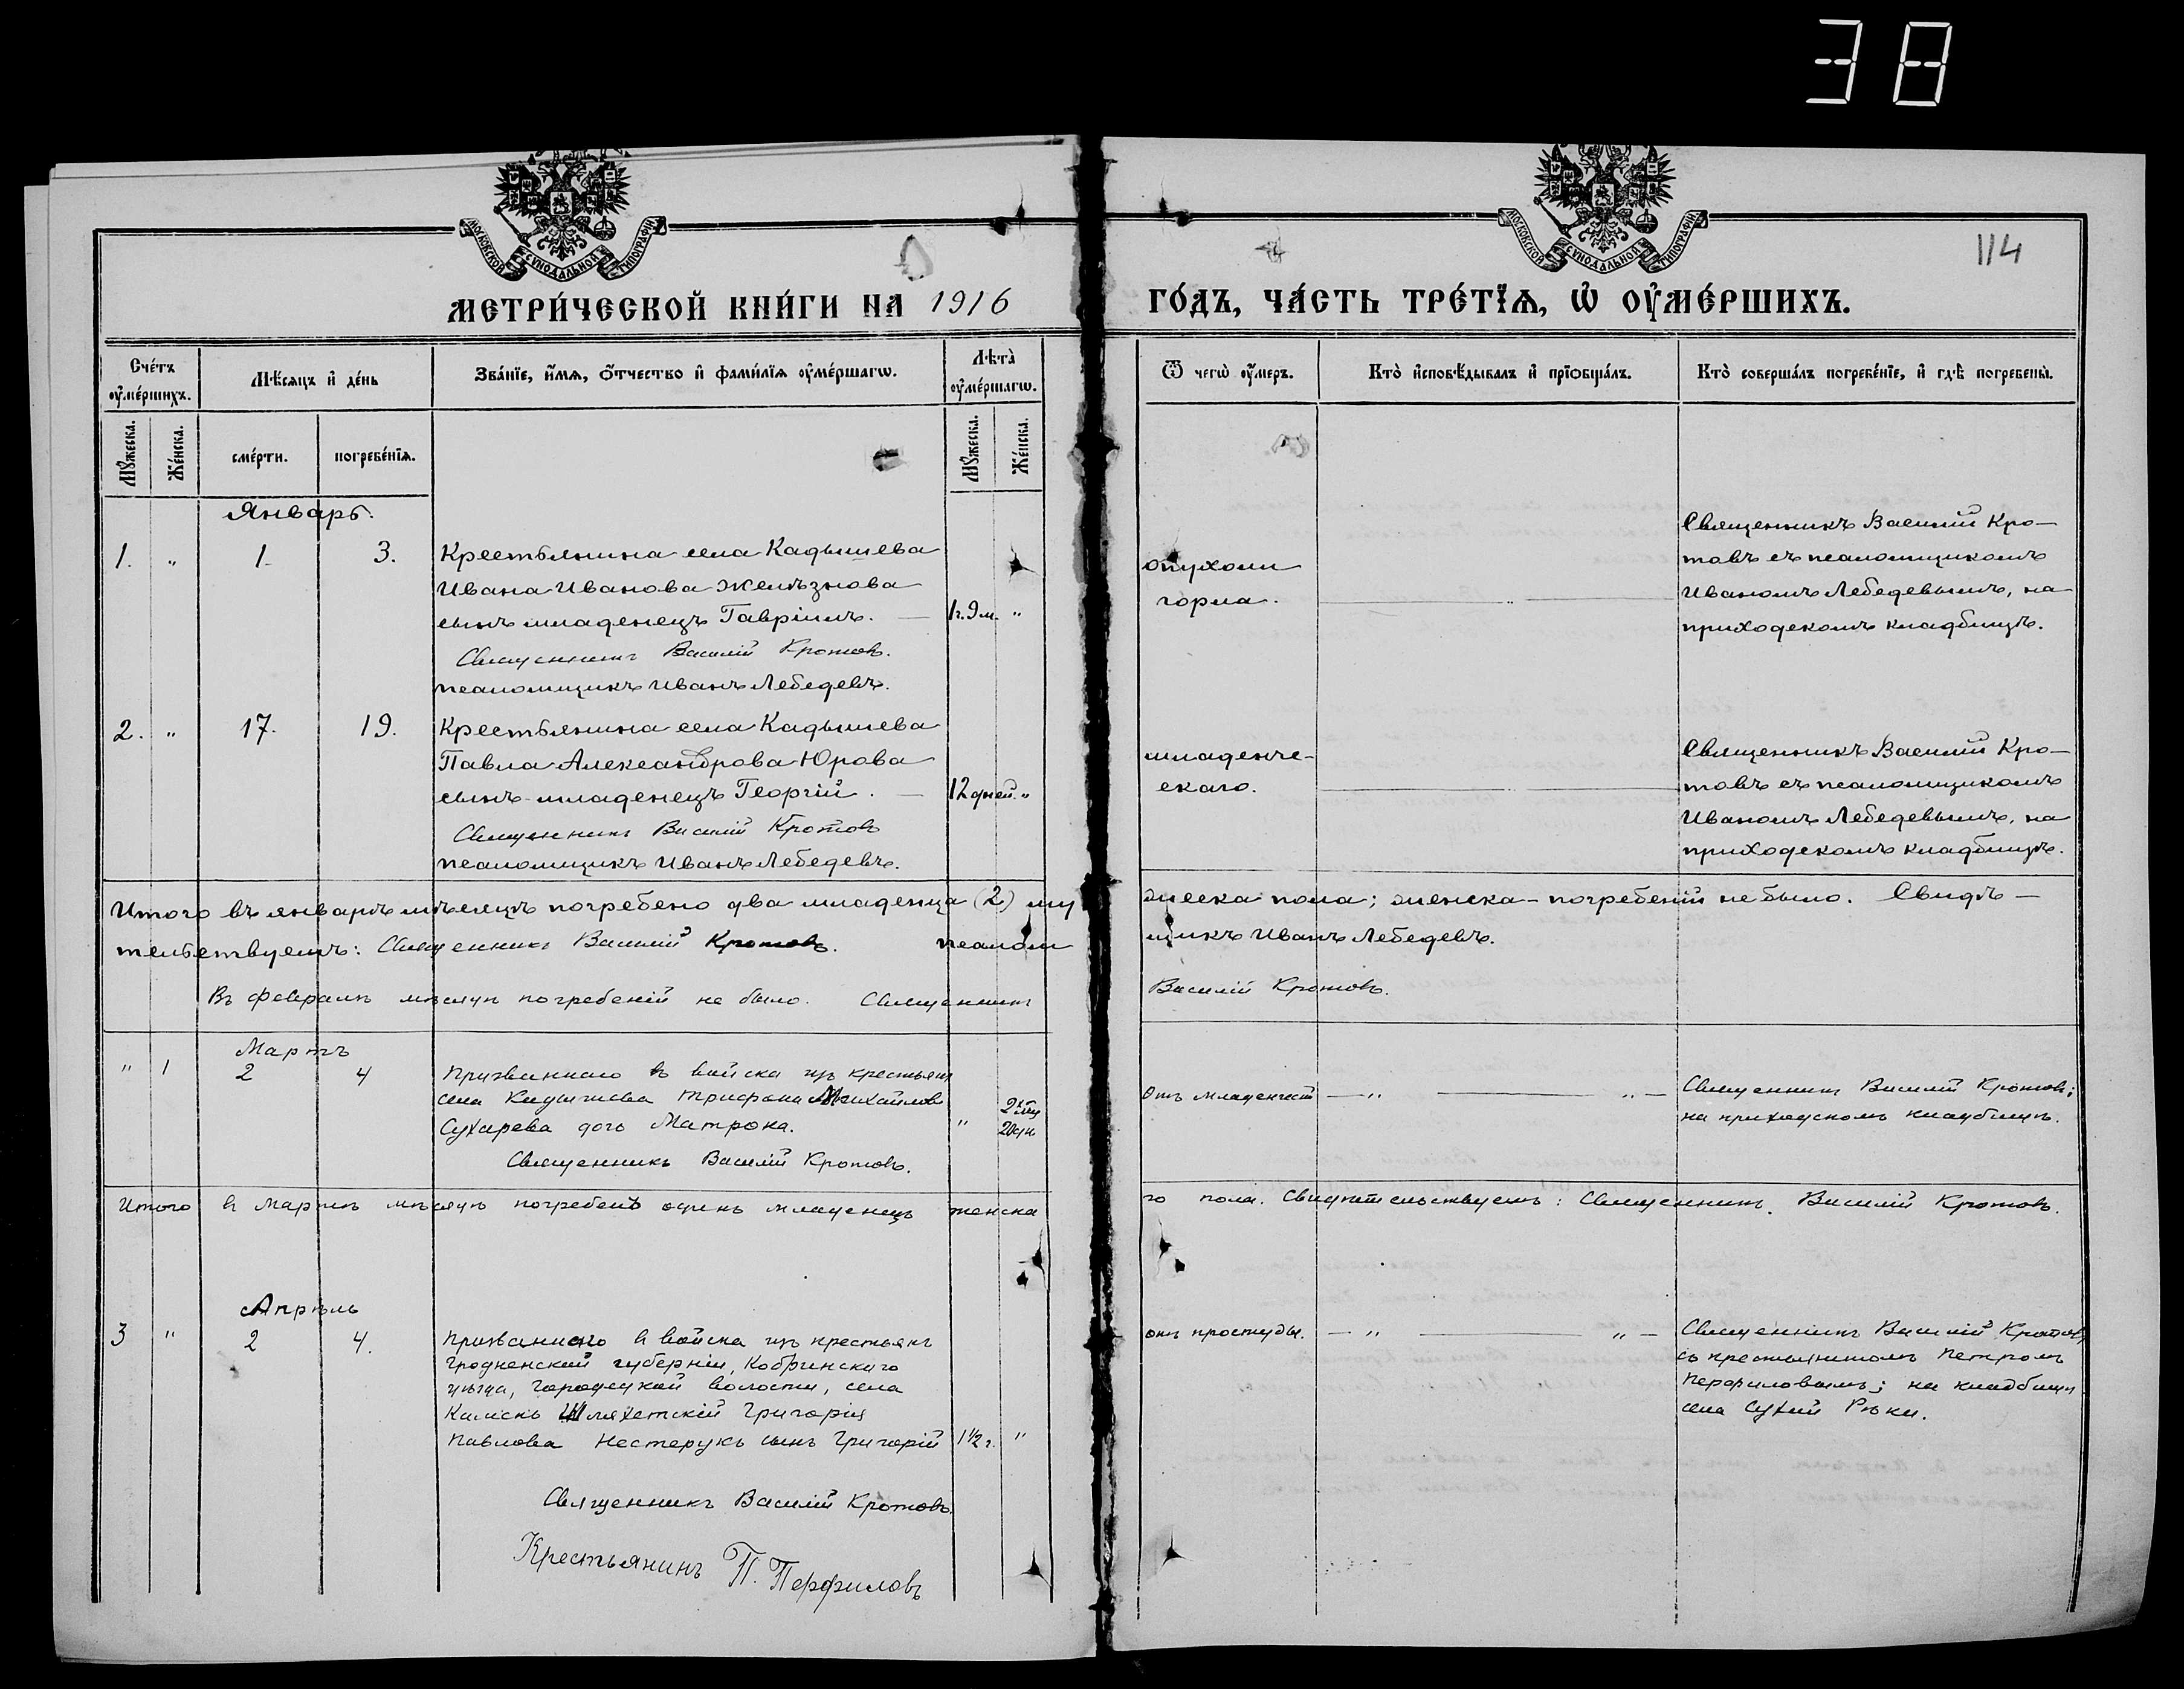 38
МОСКОВСКОЙ СѴНОДАЛЬНОЙ ТИПОГРАФІИ
МОСКОВСКОЙ СѴНОДАЛЬНОЙ ТИПОГРАФІИ
114
МЕТРИ́ЧЕСКОЙ КНИ́ГИ НА 1916 ГО́ДЪ, ЧА́СТЬ ТРЕ́ТЇѦ, Ѡ҆ ОУ҆МЕ́РШИХЪ.
Сче́тъ оу҆ме́ршихъ.
Мѣ́сяцъ и҆ де́нь
Зва́нїе, и҆́мѧ, ѻ҆́тчество и҆ фами́лїѧ оу҆ме́ршагѡ.
Лѣта̀ оу҆ме́ршагѡ.
Ѿ чегѡ̀ оу҆́меръ.
Кто̀ и҆сповѣ́дывалъ и҆ прїѻбща́лъ.
Кто̀ соверша́лъ погребе́нїе, и҆ гдѣ̀ погребены̀.
Мꙋ́жеска.
Же́нска.
сме́рти.
погребе́нїѧ.
Мꙋ́жеска.
Же́нска.
Январь.
1. " 1. 3.
Крестьянина села Кадышева
Ивана Иванова Желѣзнова
сынъ младенецъ Гавріилъ. —
1 г. 9 м. "
Священникъ Василій Кротовъ.
псаломщикъ Иванъ Лебедевъ.
опухоли
горла.
Священникъ Василій Кро-
товъ съ псаломщикомъ
Иваномъ Лебедевымъ, на
приходскомъ кладбищѣ.
2. " 17. 19.
Крестьянина села Кадышева
Павла Александрова Юрова
сынъ младенецъ Георгій. —
12 дней. "
Священникъ Василій Кротовъ
псаломщикъ Иванъ Лебедевъ.
младенче-
скаго.
Священникъ Василій Кро-
товъ съ псаломщикомъ
Иваномъ Лебедевымъ, на
приходскомъ кладбищѣ.
Итого въ январѣ мѣсяцѣ погребено два младенца (2) мужеска пола; женска - погребеній не было. Свидѣ-
тельствуемъ: Священникъ Василій Кротовъ. псаломщикъ Иванъ Лебедевъ.
Въ февралѣ мѣсяцѣ погребеній не было. Священникъ Василій Кротовъ.
Мартъ
" 1 2 4
Призваннаго въ войска изъ крестьянъ
села Кадышева Трифона Михайлова
Сухарева дочь Матрона.
" 2 мѣс 20 дн
Священникъ Василій Кротовъ.
Отъ младенчест — " — " —
Священникъ Василій Кротовъ;
на приходскомъ кладбищѣ.
Итого въ Мартѣ мѣсяцѣ погребенъ одинъ младенецъ женскаго пола. Свидѣтельствуемъ: Священникъ Василій Кротовъ.
Апрѣль
3 " 2 4.
Призваннаго въ войска изъ крестьянъ
Гродненской губерніи, Кобринскаго
уѣзда, Городецкой волости, села
Камень Шляхетскій Григорія
Павлова Нестерукъ сынъ Григорій
1 1/2 г. "
Священникъ Василій Кротовъ.
Крестьянинъ П. Перфиловъ
отъ простуды. — " — " —
Священникъ Василій Кротовъ
съ крестьяниномъ Петромъ
Перфиловымъ; на кладбищѣ
села Сухой Рѣки.